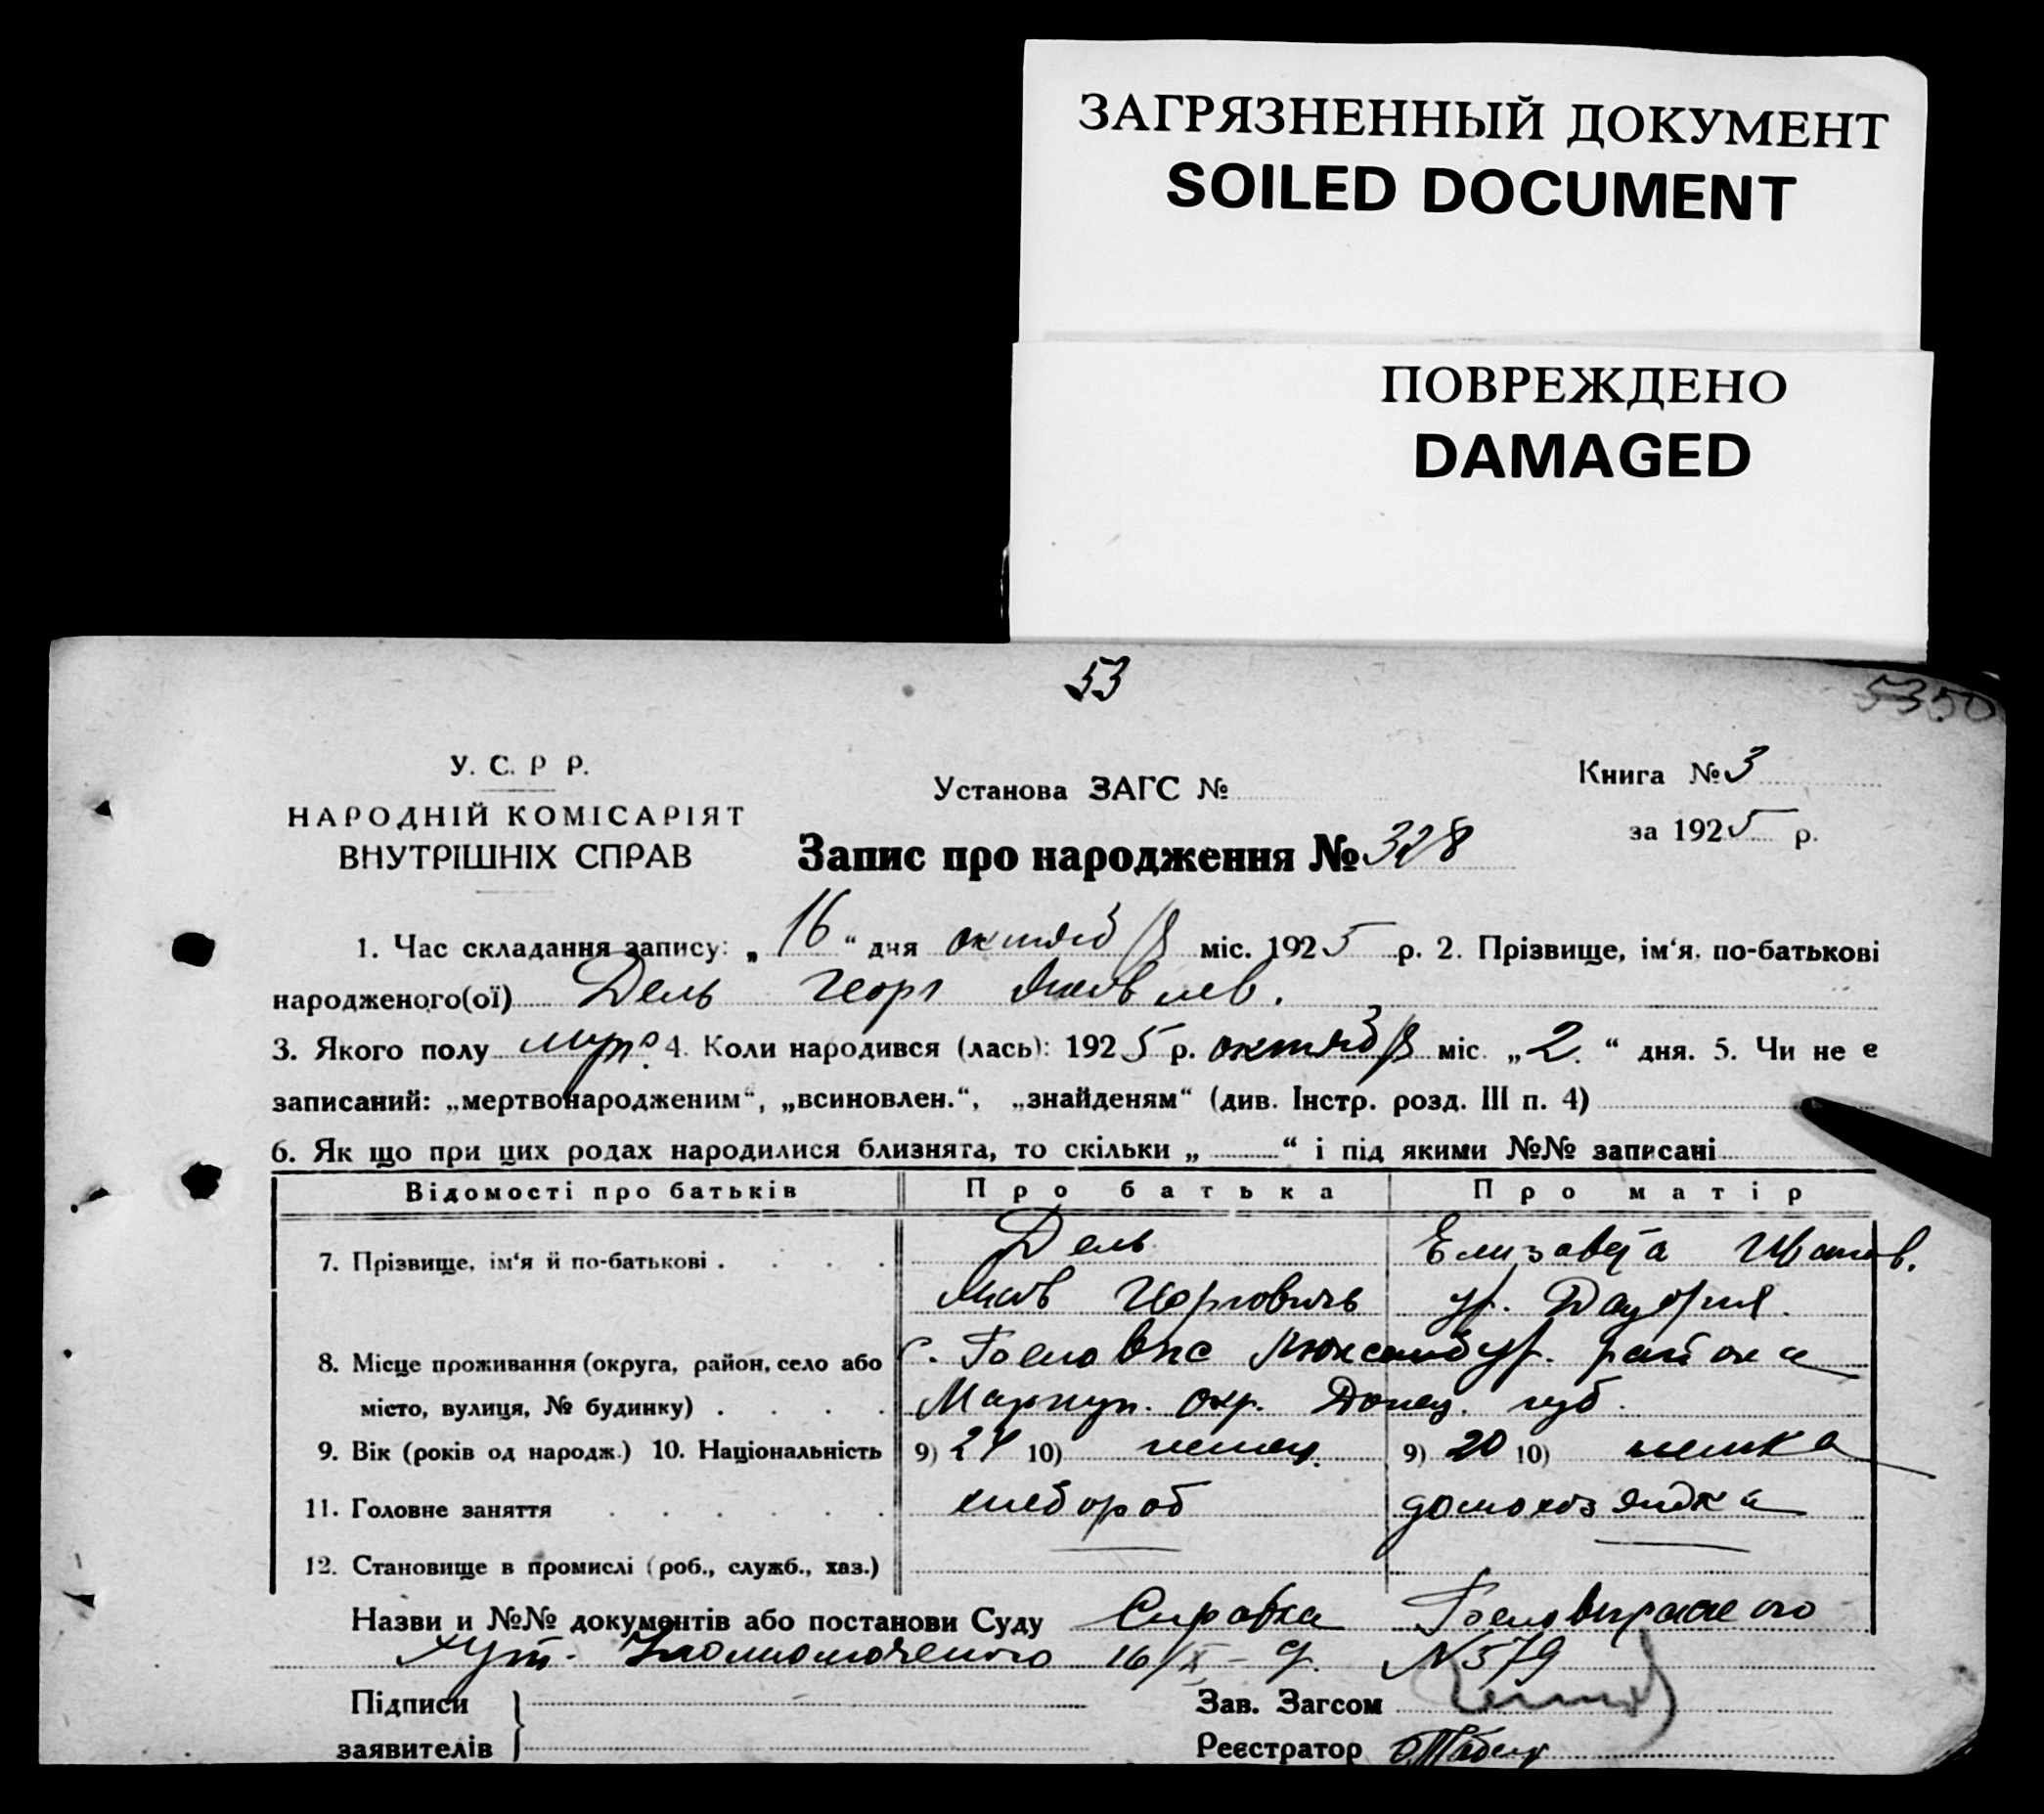 ЗАГРЯЗНЕННЫЙ ДОКУМЕНТ
SOILED DOCUMENT
ПОВРЕЖДЕНО
DAMAGED
53
5350
У. С. Р Р.
НАРОДНІЙ КОМІСАРІЯТ
ВНУТРІШНІХ СПРАВ
Установа ЗАГС №
Книга № 3
за 1925 р.
Запис про народження № 328
1. Час складання запису: „ 16 “ дня октяб міс. 1925 р. 2. Прізвище, ім‘я, по-батькові
народженого(ої) Дель Георг Яковлев.
3. Якого полу 4. Коли народився (лась): 1925 р. октяб міс. „ 2. “ дня. 5. Чи не є
записаний: „мертвонародженим“, „всиновлен.“, „знайденям“ (див. Інстр. розд. III п. 4)
6. Як що при цих родах народилися близнята, то скільки „ “ і під якими №№ записані
Відомості про батьків Про батька Про матір
7. Прізвище, ім‘я й по-батькові Дель Елизавета Иванов.
Яков Георгович ур.
8. Місце проживання (округа, район, село або с. района
місто, вулиця, № будинку) Мариуп. окр. Донец. губ.
9. Вік (років од народж.) 10. Національність 9) 24 10) немец 9) 20 10) немка
11. Головне заняття хлебороб домохозяйка
12. Становище в промислі (роб., служб., хаз.)
Назви и №№ документів або постанови Суду Справка
Уполномоченого 16/X - № 579
Підписи
заявителів
Зав. Загсом
Реєстратор